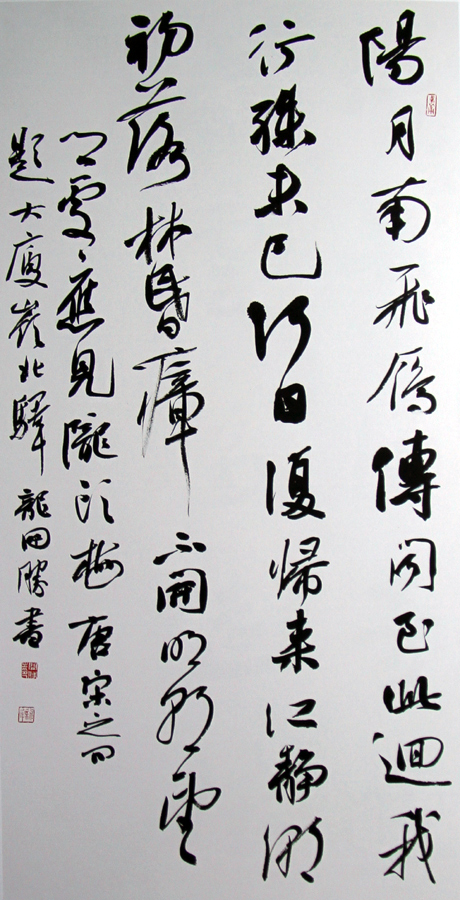 陽月南飛鴈傳聞至此迴我
行殊未已何日復歸来江静潮
初落林昏瘴不開明朝望
鄉處應見隴頭梅 唐宋之問
題大庾嶺北驛 龍田勝書